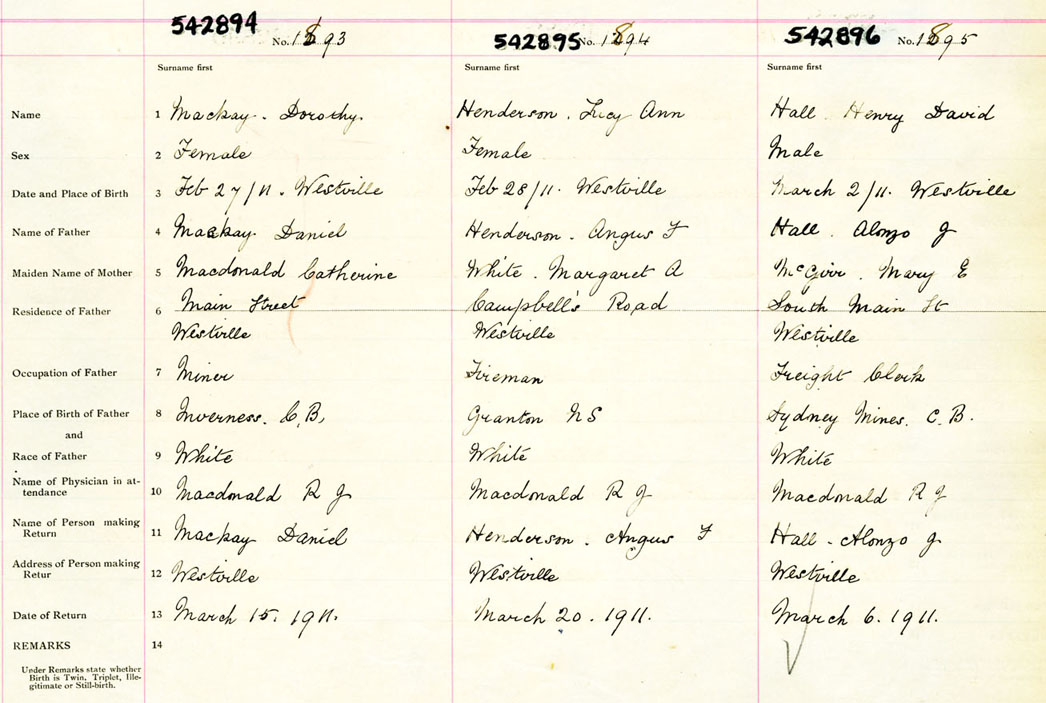 542894 No. 1893 542895 No. 1894 542896 No. 1895
Surname first Surname first Surname first
Name 1 Mackay. Dorothy. Henderson. Lucy Ann Hall. Henry David
Sex 2 Female Female Male
Date and Place of Birth 3 Feb 27/11. Westville Feb 28/11. Westville March 2/11. Westville
Name of Father 4 Mackay. Daniel Henderson. Angus F Hall. Alonzo J
Maiden Name of Mother 5 Macdonald Catherine White. Margaret A McGirr. Mary E
Residence of Father 6 Main Street Campbell's Road South Main St
Westville Westville Westville
Occupation of Father 7 Miner Fireman Freight Clerk
Place of Birth of Father 8 Inverness. C.B. Granton NS Sydney Mines. C.B.
and
Race of Father 9 White White White
Name of Physician in at-
tendance 10 Macdonald R J Macdonald R J Macdonald R J
Name of Person making
Return 11 Mackay Daniel Henderson. Angus F Hall - Alonzo J
Address of Person making
Retur 12 Westville Westville Westville
Date of Return 13 March 15. 1911. March 20. 1911. March 6. 1911.
REMARKS 14
Under Remarks state whether
Birth is Twin, Triplet, Ille-
gitimate or Still-birth.